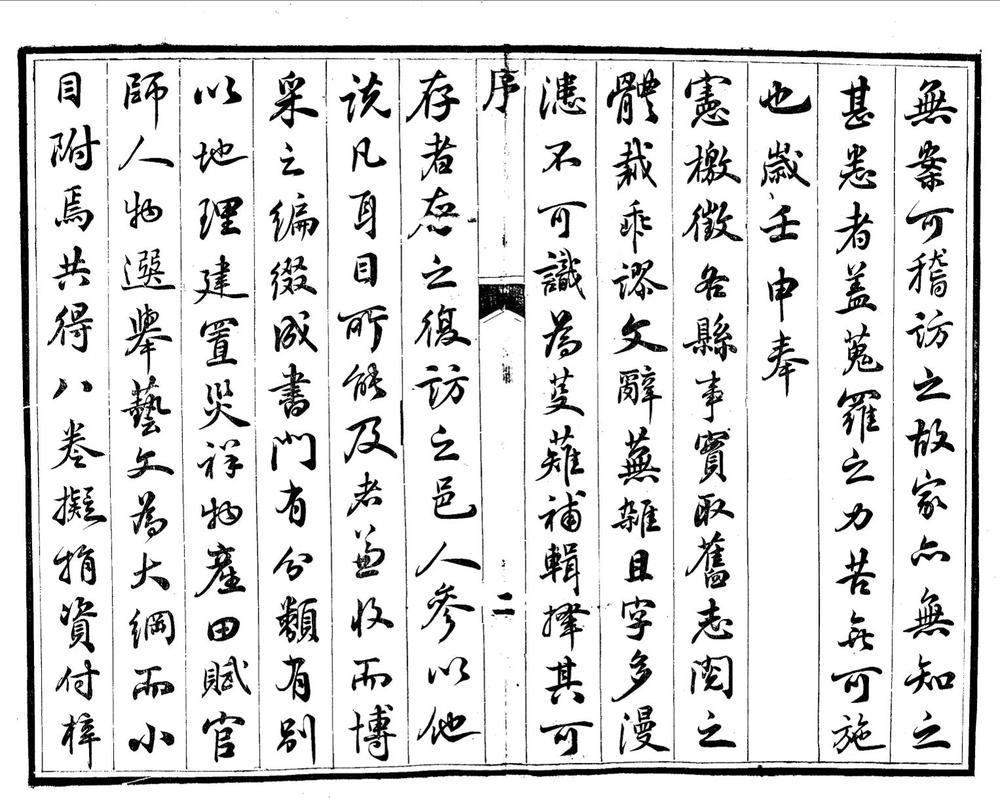 無案可稽訪之故家亦無知之
甚悉者蓋蒐羅之力苦無可施
也歲壬申奉
憲檄徵各縣事實取舊志閱之
體裁乖謬文辭蕪雜且字多漫
漶不可識為芟薙補輯擇其可
序
二
存者存之復訪之邑人參以他
說凡耳目所能及者兼收而博
采之編綴成書門有分類有別
以地理建置災祥物產田賦官
師人物選舉藝文為大綱而小
目附焉共得八卷擬捐資付梓